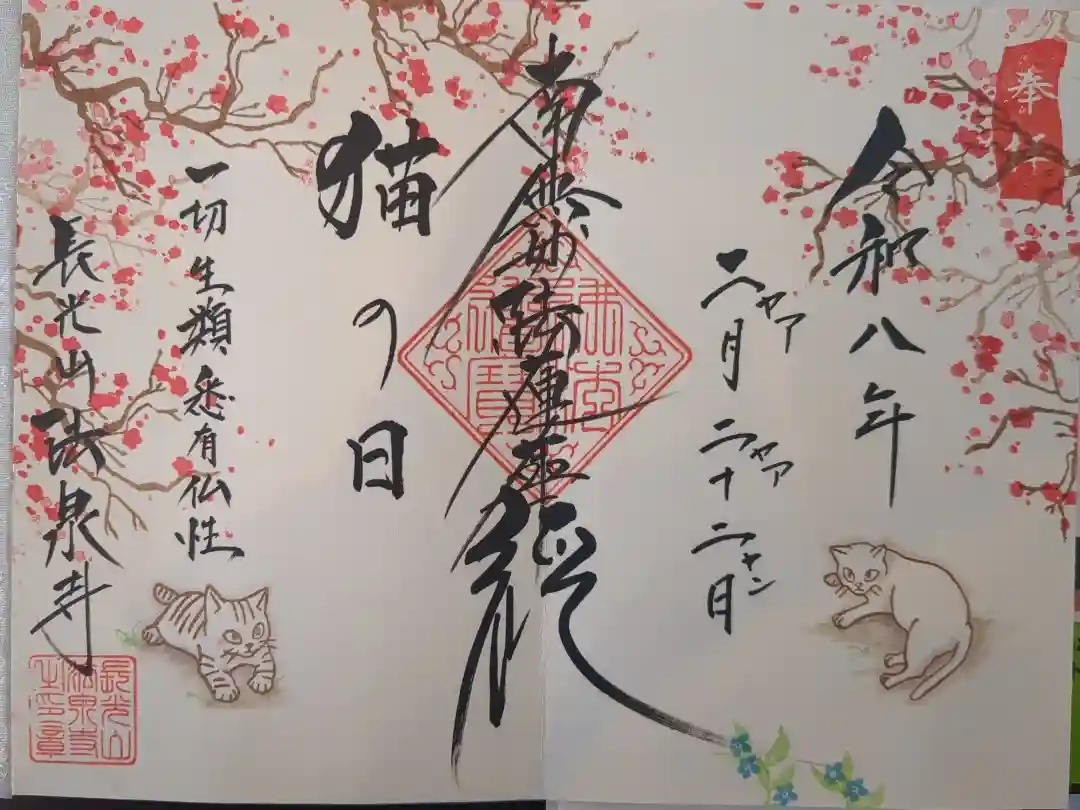 奉拝
令和八年
二月二十二日
ニャア
ニャア
ニャン
南無妙法蓮華経
猫の日
一切生類悉有仏性
長光山法泉寺
長光山
法泉寺
之印章